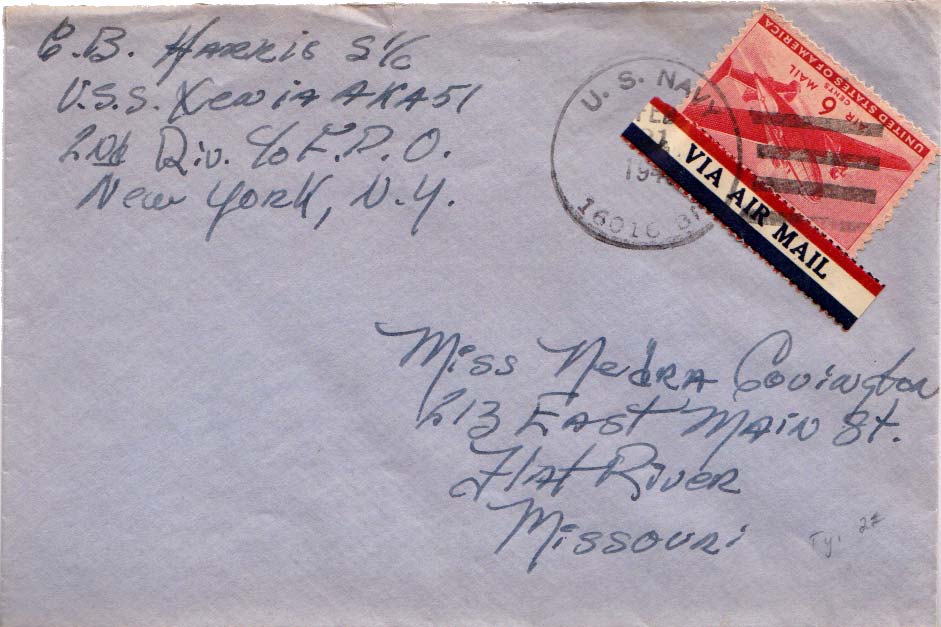 C.B. Harris S1/c
U.S.S. Xenia AKA51
2nd Div. c/o F.P.O.
New York, N.Y.
U.S. NAVY
21
16016 BR
UNITED STATES OF AMERICA
AIR MAIL
6 CENTS
VIA AIR MAIL
Miss Nedra Covington
213 East Main St.
Flat River
Missouri